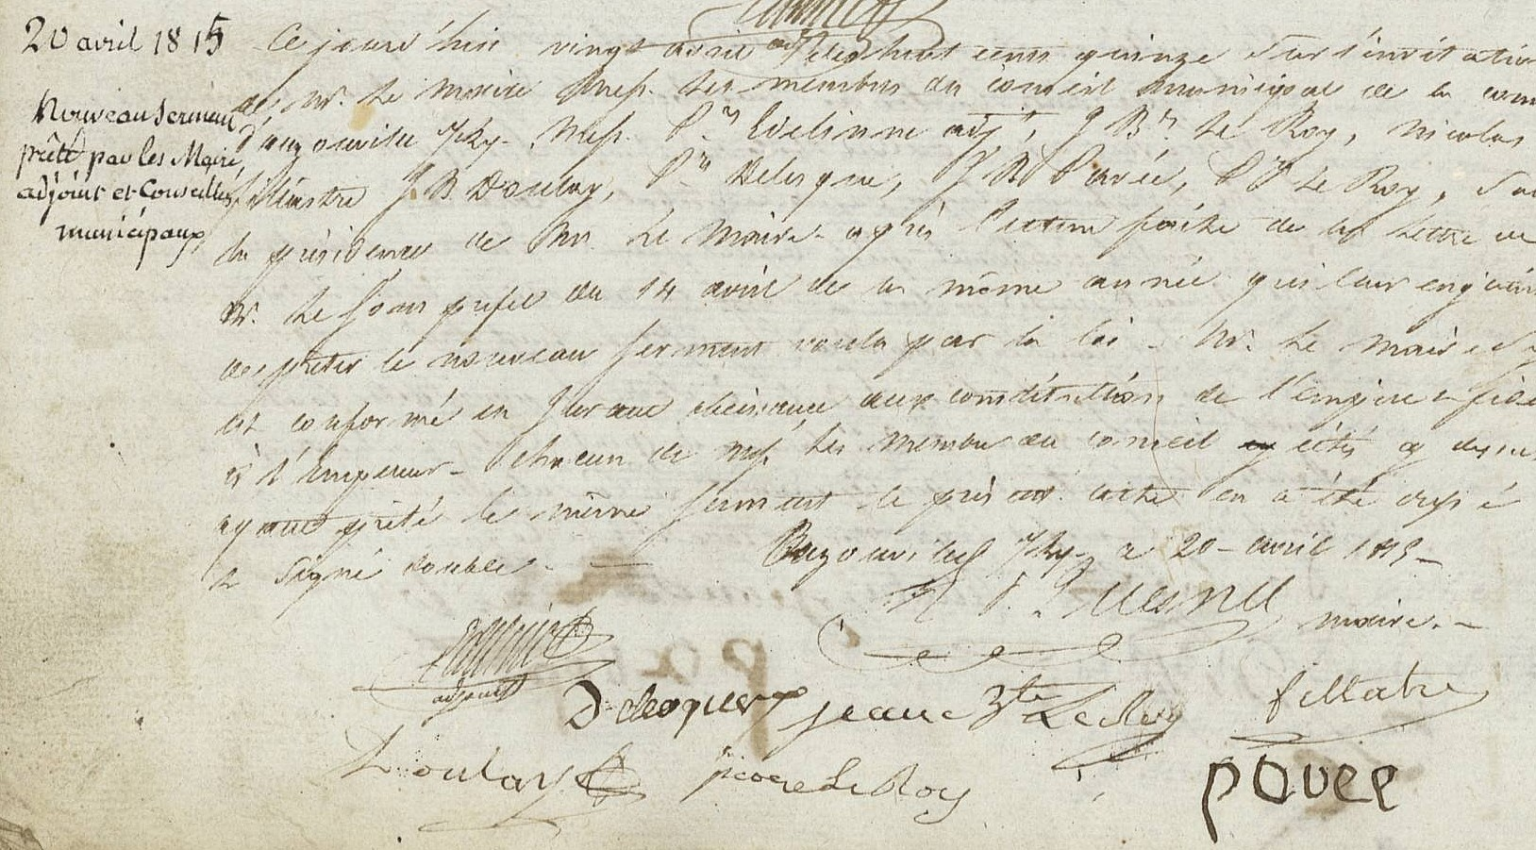 20 avril 1815
Nouveau serment
prêté par les Maire,
adjoint et Conseillers
municipaux
Ce jourd'hui vingt avril mil huit cents quinze sur l'invitation
de Mr. Le maire Mess. Les membres du conseil municipal de la com
Mess. adjt, J Bte Le Roy, nicolas
filiastre J B Doulay, Pre Delesque, J B Pavée, Pre Le Roy, sous
la présidence de Mr. Le Maire - après lecture faite de la Lettre de
Mr. Le sous prefet du 14 avril de la même année qui leur enjoint
de prêter le nouveau serment voulu par la loi - Mr. Le maire s'y
est conformé en jurant obeissance aux constitutions de l'empire & fidé
à l'Empereur - chacun de Mess. Les Membres du conseil cités cy dessus
ayant prêté le même serment le présent. acte en a été dressé
& signé double. -
a 20 - avril 1815 -
maire. -
adjoint
Delesque jean Bte Le Roy fillatre
Doulay pierre Le Roy pavee